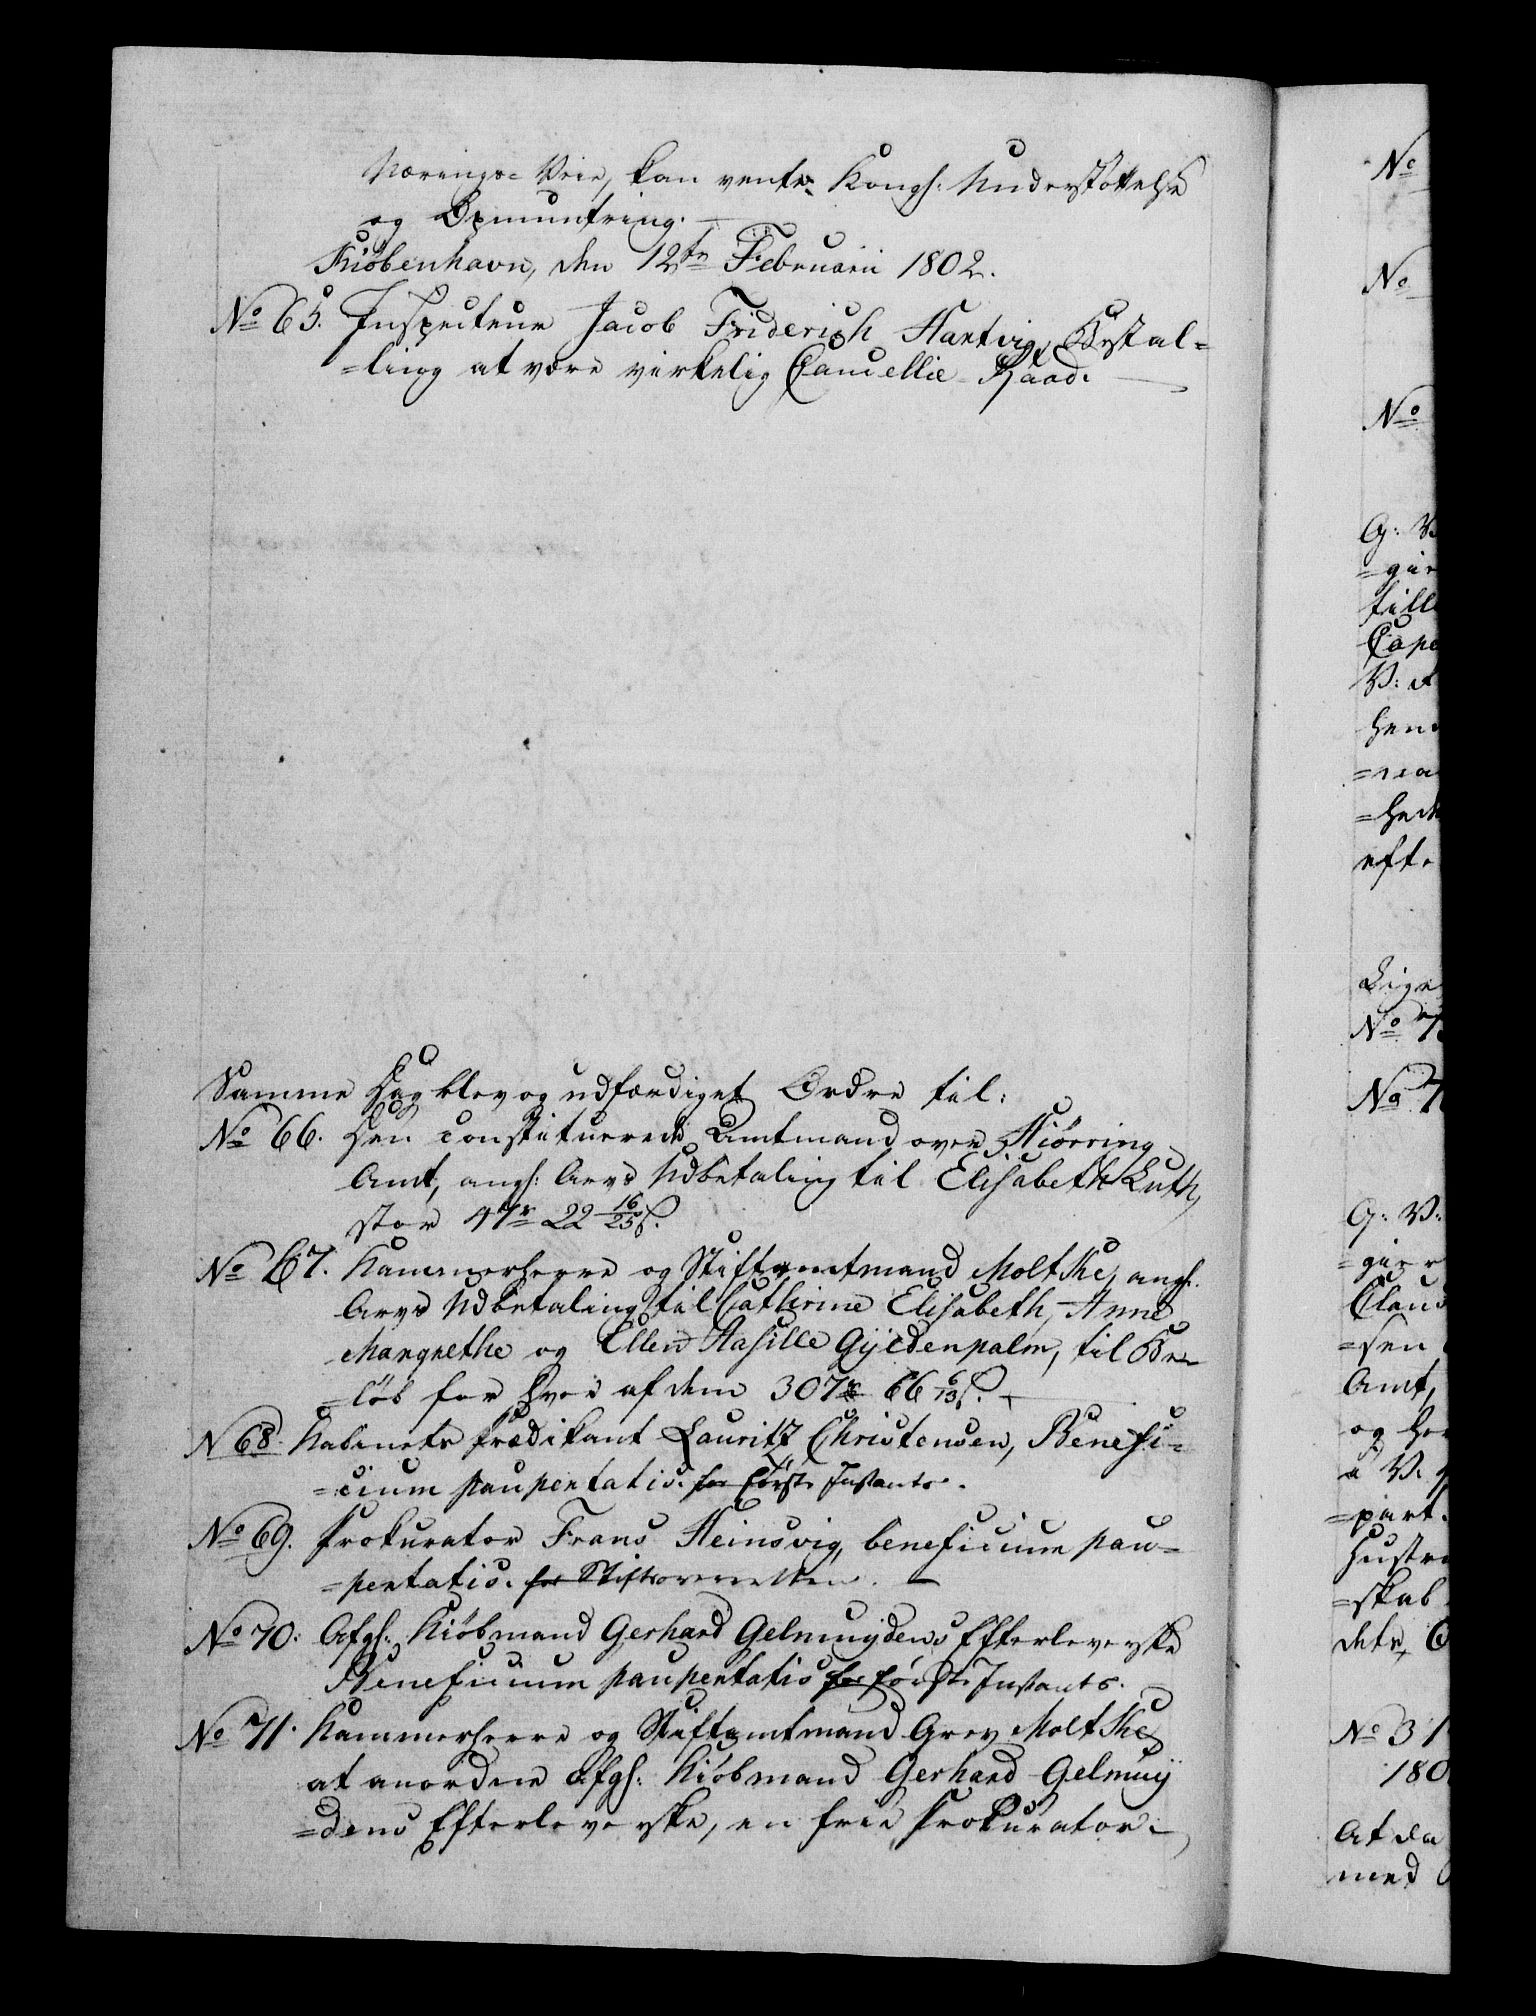 Nærings-Veie, kan vente Kongl: Understøttelse
og Opmuntring.
Kiøbenhavn, den 12te Februarii 1802.
No 65. Inspecteur Jacob Friderich Hartvig, Bestal=
=ling at være virkelig Cancellie-Raad.
Samme Dag blev og udfærdiget Ordre til:
No 66. Den constituerede Amtmand over Hiørring
Amt, angl: Arvs Udbetaling til Elisabeth Luth,
stor 47r 22 16/25 s.
No 67. Kammerherre og Stiftamtmand Moltke, angl.
Arvs Udbetaling til Cathrine Elisabeth, Anne
Margrethe og Ellen Hasille Gyldenpalm, til Be=
=løb for hver af dem 307r 66 6/13 s.
N 68 Kabinets Prædikant Lauritz Christensen, Benefi=
=cium paupertatis. for første Instants.
No 69. Prokurator Frans Heinsvig, beneficium pau=
=pertatis. for Stiftsoverretten.
No 70. Afgl: Kiøbmand Gerhard Gelmuydens Efterleverske
Beneficium paupertatis for første Instants.
No 71. Kammerherre og Stiftamtmand Grev Moltke
at anordne Afgl: Kiøbmand Gerhard Gelmuy
=dens Efterleverske, en frie Prokurator.
No
No
No
till
No
No
G: V:
Amt,
No 31
180
At da
med